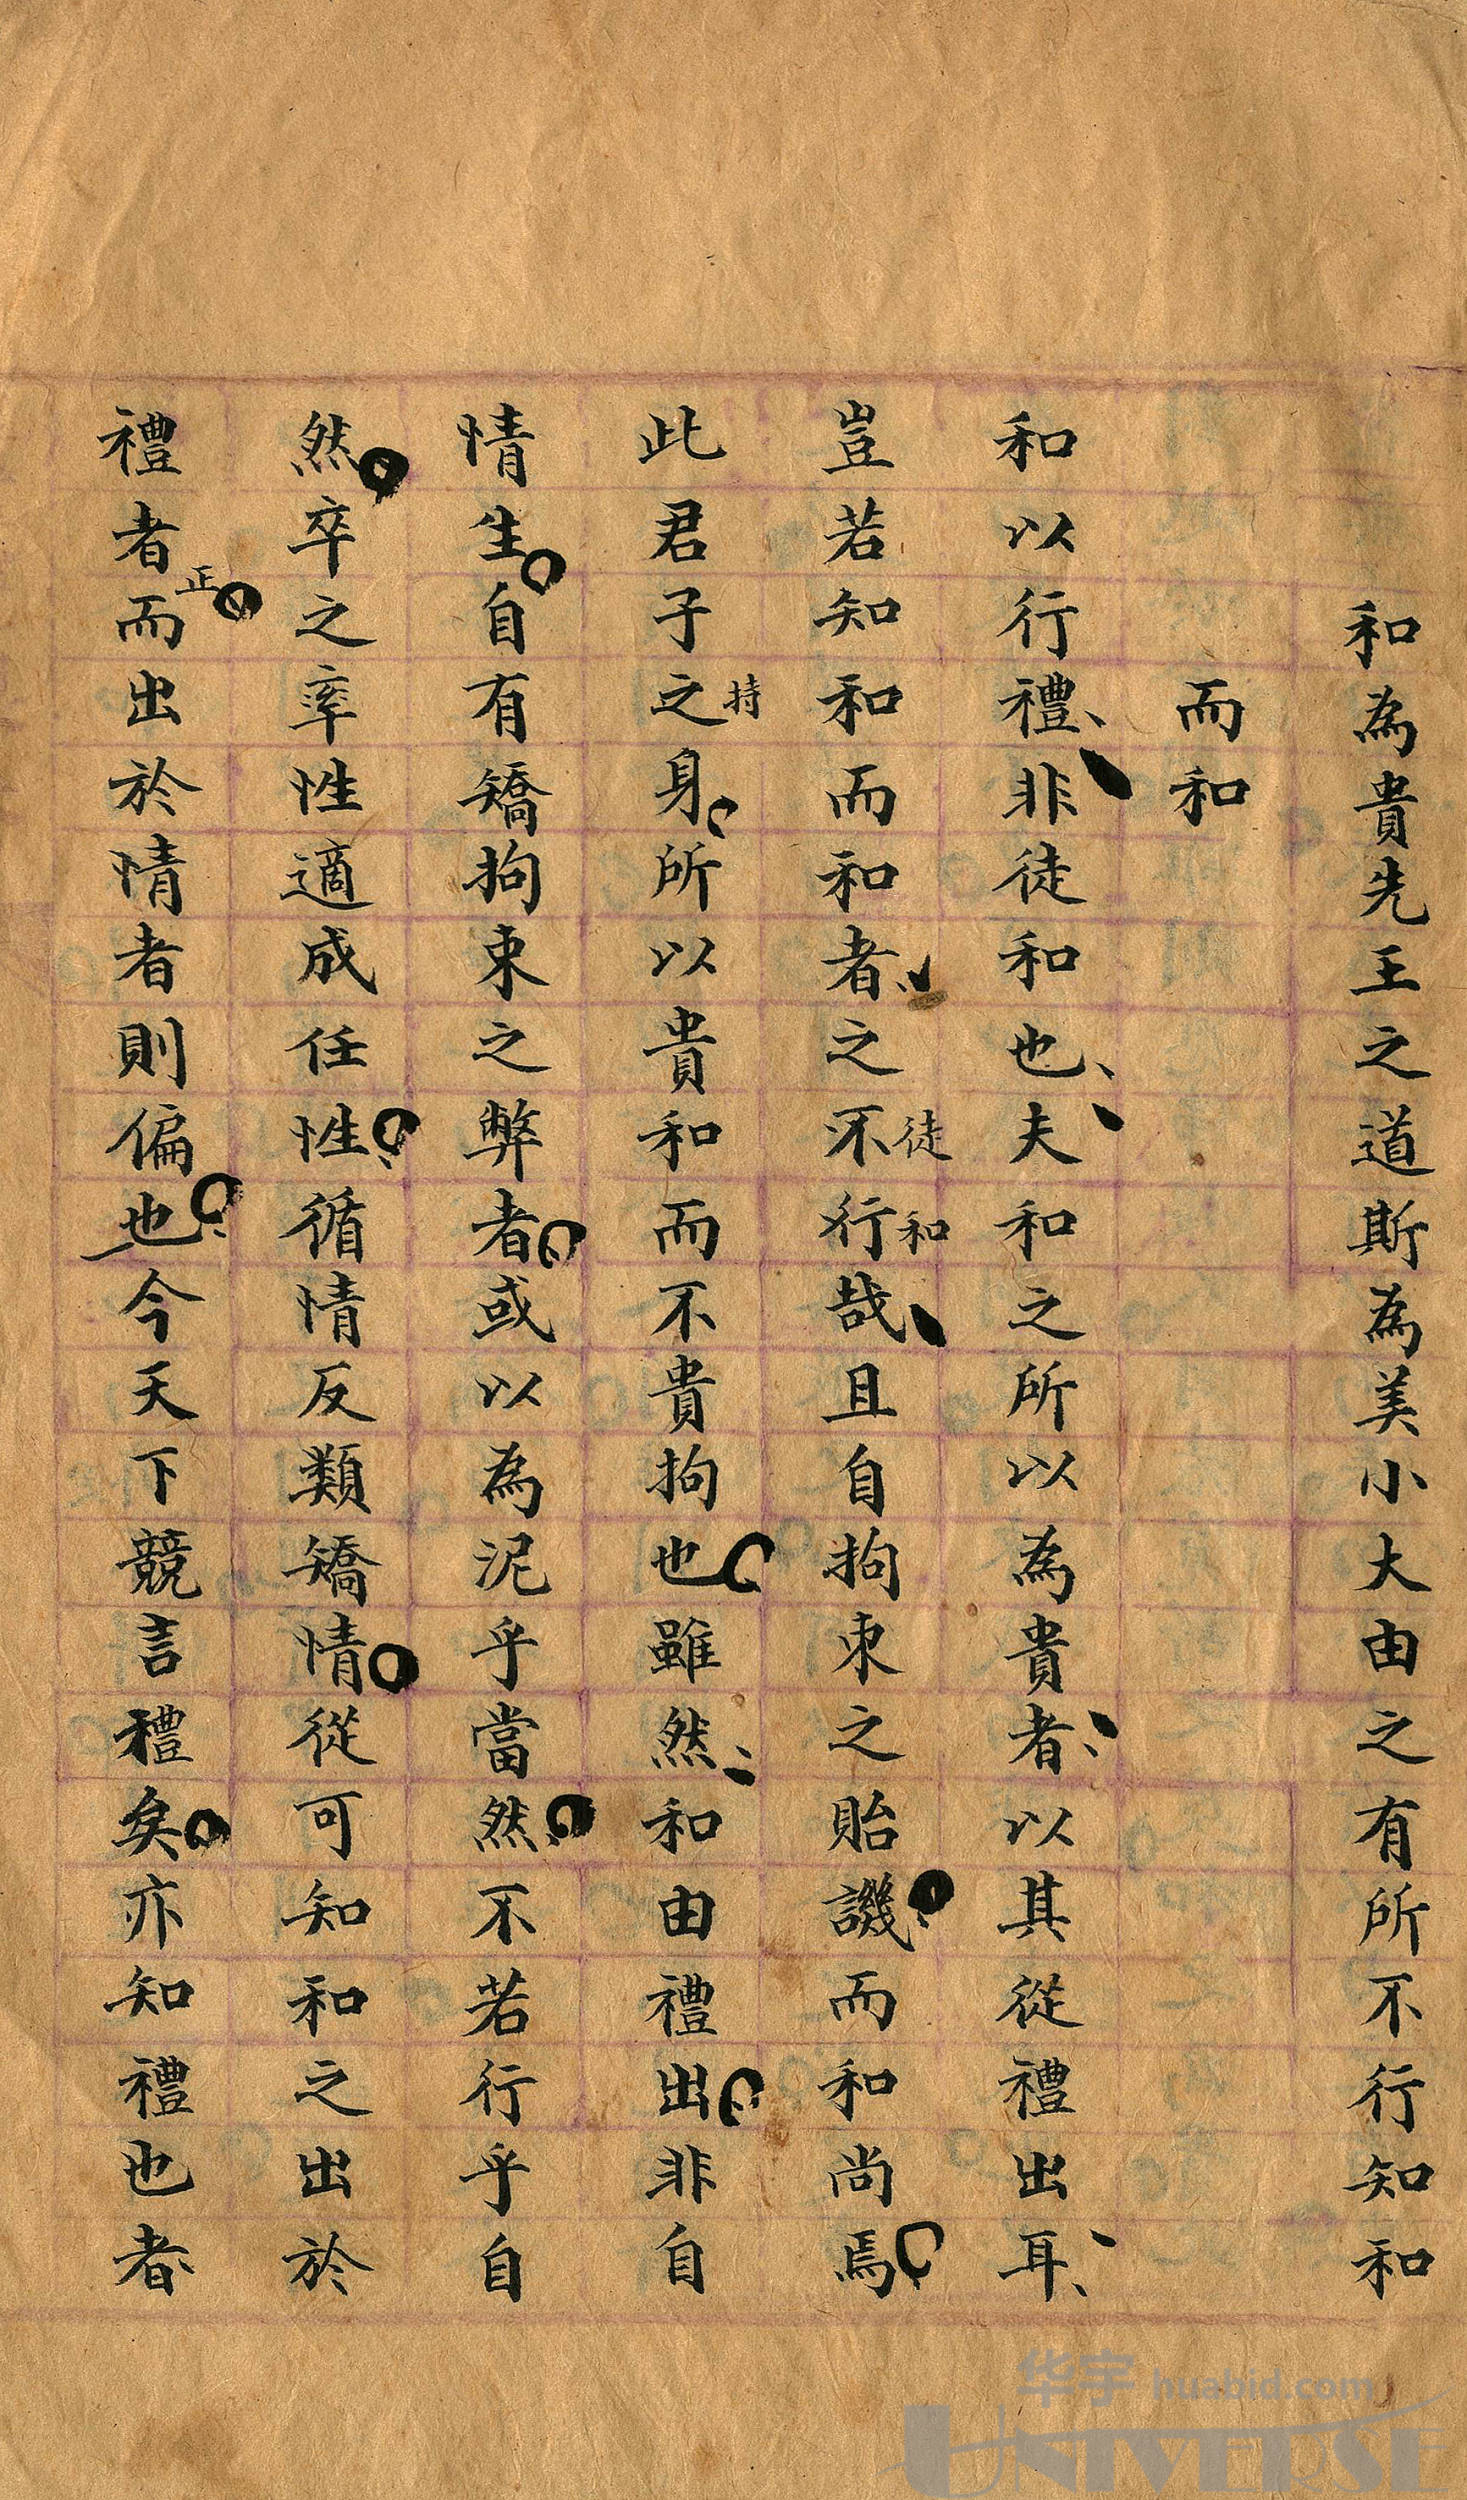 和為貴先王之道斯為美小大由之有所不行知和
而和
和以行禮非徒和也夫和之所以為貴者以其從禮出耳
豈若知和而和者之不行哉且自拘束之貽譏而和尚焉
徒和
此君子之身所以貴和而不貴拘也雖然和由禮出非自
持
情生自有矯拘束之弊者或以為泥乎當然不若行乎自
然卒之率性適成任性循情反類矯情從可知和之出於
禮者而出於情者則偏也今天下競言禮矣亦知禮也者
正
华宇 huabid.com
UNIVERSE